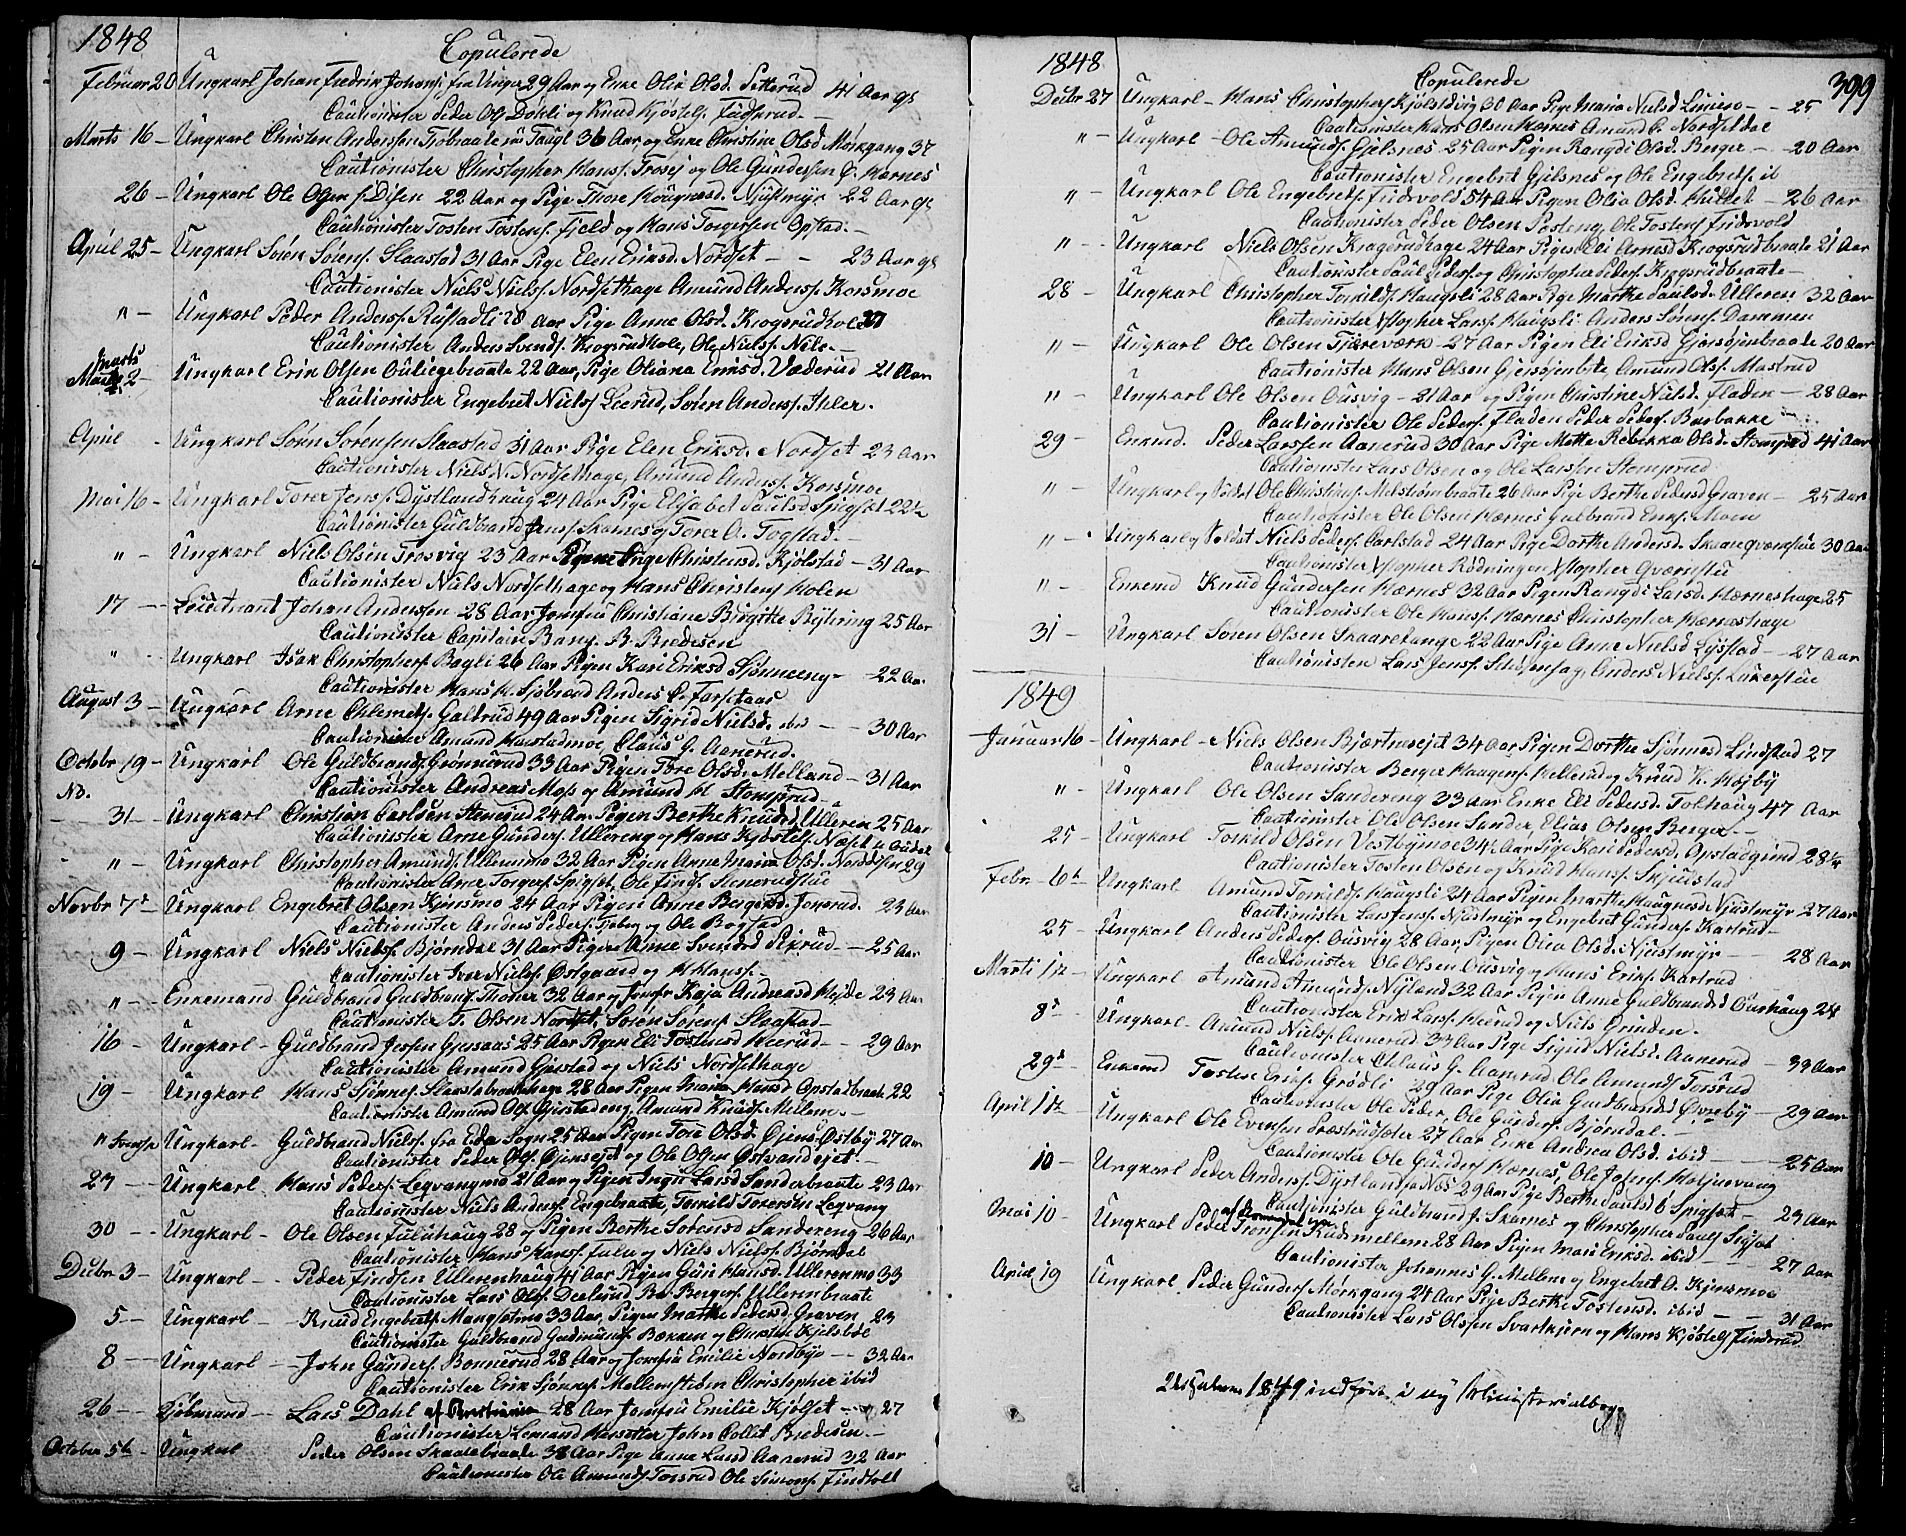 1848
Copulerede
Februar 20 Ungkarl Johan Fredrik Johans. fra Unga 29 Aar og Enke Olia Olsd. Setterud 41 Aar gl
Cautionister Peder Ols. Döhli og Knud Kjöstels.
Marts 16 – Ungkarl Christen Anderssen 36 Aar og Enke Christine Olsd Mörkgang 37
Cautionister Christopher Hanss. og Ole Gundersen Ö. Harnes
26 – Ungkarl Ole Olsen Disen 22 Aar og Pige Thore Haugnesd. Njustmyr 22 Aar gl
Cautionister Tosten Tostens. Fjeld og Hans Torgersen Opstad. –
April 25 – Ungkarl Sören Sörens. Slaastad 31 Aar Pige Elen Eriksd. Nordset – – 23 Aar gl
Cautionister Niels Niels. Nordsethage Amund Anders. Korsmoe
" – Ungkarl Peder Anders. Rustadli 28 Aar Pige Anne Olsd. Krogsrudhol 27
Cautionister Anders Svends. Krogsrudhole, Ole Niels.
Marts 2 – Ungkarl Erik Olsen 22 Aar, Pige Oliana Eriksd. Væderud 21 Aar
Cautionister Engebret Niels. Leerud, Sören Anders. Ihler.
April – Ungkarl Sören Sörensen Slaastad 31 Aar Pige Elen Eriksd. Nordset 23 Aar
Cautionister Niels N. Nordsethage, Amund Anders. Korsmoe
Mai 16 – Ungkarl Torer Jens. Dystlandhaug 24 Aar Pige Elisabet Paulsd Spigset 22½
Cautionister Guldbrand Jens. Skarnes og Torer A. Togstad. –
" – Ungkarl Niels Olsen Trosvig 23 Aar Pige Christensd. Kjölstad – 31 Aar
Cautionister Niels Nordsethage og Hans Christens. Holen
17 – Leutnant Johan Andersen 28 Aar Jomfru Christiane Birgitte Bÿhring 25 Aar
Cautionister Capitain Bang. B. Bredesen
" – Ungkarl Isak Christophers. Bagli 26 Aar Pigen Kari Eriksd Sjönneeng – 22 Aar
Cautionister Hans H. Sjöbrend Anders C.
August 3 – Ungkarl Arne Chlemets. Galtrud 49 Aar Pigen Sigrid Nielsd. ibd – 30 Aar
Cautionister Amund Harstadmoe, Claus G. Aanerud.
October 19 – Ungkarl Ole Guldbrands. Grönnerud 33 Aar Pigen Tore Olsd. Melland – 31 Aar
NB. Cautionister Andreas Moss og Amund H. Stomsrud –
31 – Ungkarl Christian Carlsen Stenerud 24 Aar Pigen Berthe Knudsd. Ulleren 25 Aar
Cautionister Arne Gunders. Ullereng og Hans Kjöstels. Næset
" – Ungkarl Christopher Amunds. Ullernmo 32 Aar Pigen Anne Maria Olsd. Norddisen 29
Cautionister Arne Torgers. Spigset, Ole Finds. Stenerudstue
Novbr 7d – Ungkarl Engebret Olsen Kjensmo 24 Aar Pigen Anne Bergersd. Jonsrud. 23 Aar
Cautionister Anders Peders. og Ole Bogstad
9 – Ungkarl Niels Niels. Björndal 31 Aar Pigen Anne Svendsd – 25 Aar
Cautionister Iver Niels. Ostgaard og H Hans. –
" – Enkemand Guldbrand Guldbrands. Thoner 32 Aar og Jomfr Kaja Andreasd Hojde 23 Aar
Cautionister T. Olsen Nordset, Sören Sörens. Slaastad –
16 – Ungkarl – Guldbrand Jensen Gjersaas 25 Aar Pigen Eli Tostensd Heerud – 29 Aar
Cautionister Amund Gjerstad og Niels Nordsethage
19 – Ungkarl Hans Sjönnes. Slaastadbraatehage 28 Aar Pigen Maria Hansd Opstadbraate 22
Cautionister Amund Ols. Gjerstadeng, Amund Knuds. Mellem. –
" Svensk Ungkarl – Guldbrand Niels. fra Eda Sogn 25 Aar Pigen Tore Olsd. Östby 27 Aar
Cautionister Peder Ols. og Ole Olsen
27 – Ungkarl Hans Peders. Leqvangmo 21 Aar og Pigen Ingri Larsd Sanderbraate 23 Aar
Cautionister Niels Anders. Engebraate, Torkild Torersen Leqvang
30 – Ungkarl – Ole Olsen Fuluhaug 28 og Pigen Berthe Sörensd Sandereng 26 Aar
Cautionister Hans Hans. Fulu og Niels Niels. Björndal
Decbr 3 – Ungkarl – Peder Findsen Ullerenhaug 41 Aar Pigen Guri Hansd. Ullerenmo 33
Cautionister Lars Ols. Bergers. Ullernbraate
5 – Ungkarl – Knud Engebrets. Mangsetmo 33 Aar, Pigen Marthe Pedersd Graven 23
Cautionister Guldbrand Gudmunds. Bækken og Christen Kjelsböl
8 – Ungkarl – John Gunders. Bonnerud 28 Aar og Jomfru Emilie Nordbye – 32 Aar
Cautionister Erik Sjönnes. Mellemstuen Christopher ibid
26 – Kjöbmand – Lars Dahl af Christiania 28 Aar Jomfru Emilie Kjölset – 27
Cautionister John Collet Bredesen –
October 5te – Ungkarl Peder Olsen Skaalebraate 38 Aar Pige Anne Larsd Aanerud 32 Aar
Cautionister Ole Amunds. Torsrud Ole Simens. Findholt
399
1848
Copulerede
Decbr 27 Ungkarl – Hans Christophers. Kjölstdvig 30 Aar Pige Maria Nielsd – – 25
Cautionister Hans Olsen Hærnes Amund C. Nordsetdal
" – Ungkarl – Ole Amunds. Gjelsnes 25 Aar Pigen Rangdi Olsd. Berger – – 20 Aar
Cautionister Engebret Gjelsnes og Ole Engebrets. ib
" – Ungkarl Ole Engebrets. Fridsvold 54 Aar Pigen Olia Olsd. Hullet – 26 Aar
Cautionister Peder Olsen Posteng, Ole Tostens. Fridsvold
" – Ungkarl Niels Olsen Krogsrudhage 24 Aar Pigen Eli Arnesd Krogsrudbraate 21 Aar
Cautionister Paul Peders. og Christopher Peders. Krogsrudbraate –
28 – Ungkarl Christopher Torkilds. Haugsli 28 Aar Pige Marthe Paulsd. Ulleren 32 Aar
Cautionister Xstopher Lars. Haugsli Anders Sörens. Dammen
" – Ungkarl Ole Olsen Tjereværk – 27 Aar Pigen Eli Eriksd Gjersöjenbraate 20 Aar
Cautionister Hans Olsen Gjersöjenbte, Amund Ols. Mastrud
" – Ungkarl Ole Olsen Ousvig – 21 Aar og Pigen Christine Nielsd. Fladen – 28 Aar
Cautionister Ole Peders. Fladen Peder Peders. Barbakke
29 – Enkemd. Peder Larsen Aanerud 30 Aar Pige Mette Rebekka Olsd. Stomsrud 41 Aar
Cautionister Lars Olsen og Ole Larsen Stomsrud
" – Ungkarl og Soldat Ole Christens. Melströmbraate 26 Aar Pige Berthe Pedersd Graven – 25 Aar
Cautionister Ole Olsen Hærnes Gulbrand Eriks. Moen
" – Ungkarl og Soldat Niels Peders. Carlstad 24 Aar Pige Dorthe Andersd. Skaanqværnstue 30 Aar
Cautionister Xstopher Rödningen Xstopher Qværnstu
" – Enkemd Knud Gundersen Hærnes 32 Aar Pigen Rangdi Larsd. Hærneshage 25
Cautionister Ole Hans. Hærnes Christopher Hærneshage
31 – Ungkarl Sören Olsen Skaaretange 22 Aar Pige Anne Nielsd Lÿstad – 27 Aar
Cautionister Lars Jens. Anders Niels. Lukerstue
1849
Januar 16 – Ungkarl – Niels Olsen Bjærtnesejet 34 Aar Pigen Dorthe Sjönnesd Lindstad 27
Cautionister Berger Haagens. Hellerud og Knud K. Højby
" – Ungkarl Ole Olsen Sandereng 33 Aar Enke Eli Pedersd. Tolhaug 47 Aar
Cautionister Ole Olsen Sander, Elias Olsen Berger. –
25 – Ungkarl Torkild Olsen Vestbymoe 34½ Aar Pige Kari Pedersd. Opstadgrind 28¼
Cautionister Tosten Olsen og Knud Hans. Skjerstad
Febr. 6te Ungkarl Amund Torkilds. Haugsli 24 Aar Pigen Marthe Haugnesd. Njustmyr 27 Aar
Cautionister Lars Jens. Njustmyr og Engebret Gunders. Kartrud –
25 – Ungkarl Anders Peders. Ousvig 28 Aar, Pigen Olia Olsd. Njustmyr – 28 Aar
Cautionister Ole Olsen Ousvig og Hans Eriks. Kartrud
Marti 1ste – Ungkarl Amund Amunds. Nyland 32 Aar Pigen Anne Guldbrandsd Ourhaug 24
Cautionister Erik Lars. Heerud og Niels Grinden.
8d – Ungkarl – Amund Niels. Aanerud 33 Aar Pige Sigrid Nielsd. Aanerud – 39 Aar
Cautionister Chlaus G. Aanerud Ole Amunds. Torsrud
29d – Enkemd Tosten Eriks. Grödli 29 Aar Pige Olia Guldbrandsd Övreby – 29 Aar
Cautionister Ole Peder, Ole Gunders. Björndal. –
April 1ste – Ungkarl Ole Evensen Præstrudsæter 27 Aar Enke Andrea Olsd. ibid – 25 Aar
Cautionister Ole Gunders. Hærnes, Ole Johns. Holjuvang
10 – Ungkarl Peder Anders. Dÿstland fra Næs 29 Aar Pige Berthe Paulsd Spigset – 23 Aar
Cautionister Guldbrand J. Skarnes og Christopher Pauls. Spigset
Mai 10 – Ungkarl Peder Tronsen af Romedal Sogn Rudsmellem 28 Aar Pigen Mari Eriksd. ibid – 27 Aar
Cautionister Johannes G. Mellem og Engebret O. Kjensmoe
April 19 Ungkarl Peder Gunders. Mörkgang 24 Aar Pige Berthe Tostensd. ibid – – 31 Aar
Cautionister Lars Olsen Svartkjern og Hans Kjöstels. Finderud
1849 indfört i ny Ministerialbog